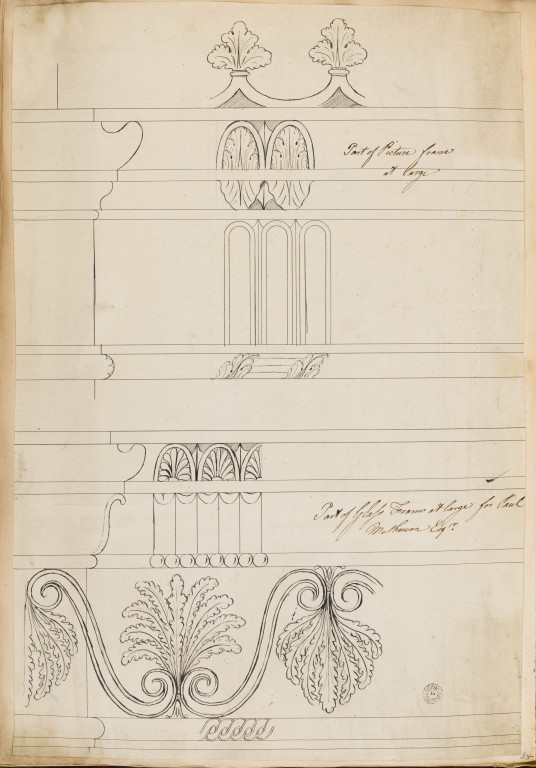 Part of Picture frame
at large
Part of Glass Frame at large for Paul
Methuen Esqr.